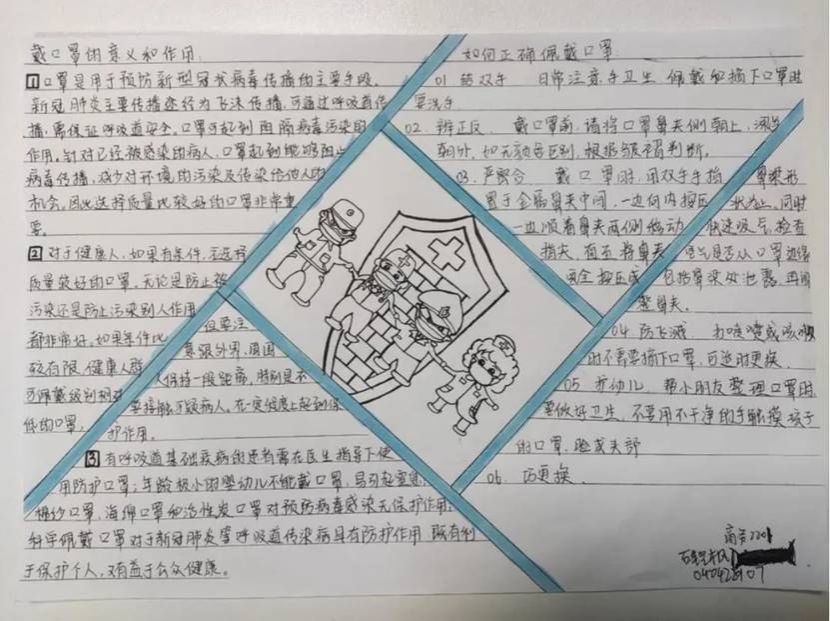 戴口罩的意义和作用:
1 口罩是用于预防新型冠状病毒传播的主要手段。
新冠肺炎主要传播途径为飞沫传播,可通过呼吸道传
播,需保证呼吸道安全。口罩可起到阻隔病毒污染的
作用。针对已经被感染的病人,口罩起到能够阻止
病毒传播,减少对环境的污染及传染给他人的
机会。因此选择质量比较好的口罩非常重
要。
2 对于健康人,如果有条件,无选择
质量较好的口罩。无论是防止被
污染还是防止污染别人作用
都非常好。如果条件比
较有限,健康人群
可佩戴级别相对
低的口罩,
但要注
意跟外界,周围
人保持一段距离,特别是不
要接触可疑病人。在一定程度上起到保
护作用。
3 有呼吸道基础疾病的患者需在医生指导下使
用防护口罩;年龄极小的婴幼儿不能戴口罩,易引起窒息;
棉纱口罩,海绵口罩和活性炭口罩对预防病毒感染无保护作用;
科学佩戴口罩对于新冠肺炎等呼吸道传染病具有防护作用,既有利
于保护个人,又有益于公众健康。
如何正确佩戴口罩:
01 双手 日常注意手卫生,佩戴和摘下口罩时
要洗手
02. 辨正反 戴口罩前,请将口罩鼻夹侧朝上,深色
朝外,如无颜色区别,根据皱褶判断。
03. 严密合 戴口罩时,用双手手指
置于金属鼻夹中间,一边向内按压
一边顺着鼻夹两侧移动
指尖,直至将鼻夹
完全按压成
鼻梁形
状为止。同时
快速吸气,检查
空气是否从口罩边缘
包括鼻梁处泄露,再调
整鼻夹。
04. 防飞溅 打喷嚏或咳嗽
时不需要摘下口罩,可适时更换。
05. 护幼儿 帮小朋友整理口罩时
要做好卫生,不要用不干净的手触摸孩子
的口罩、脸或头部
06. 更换。
2201